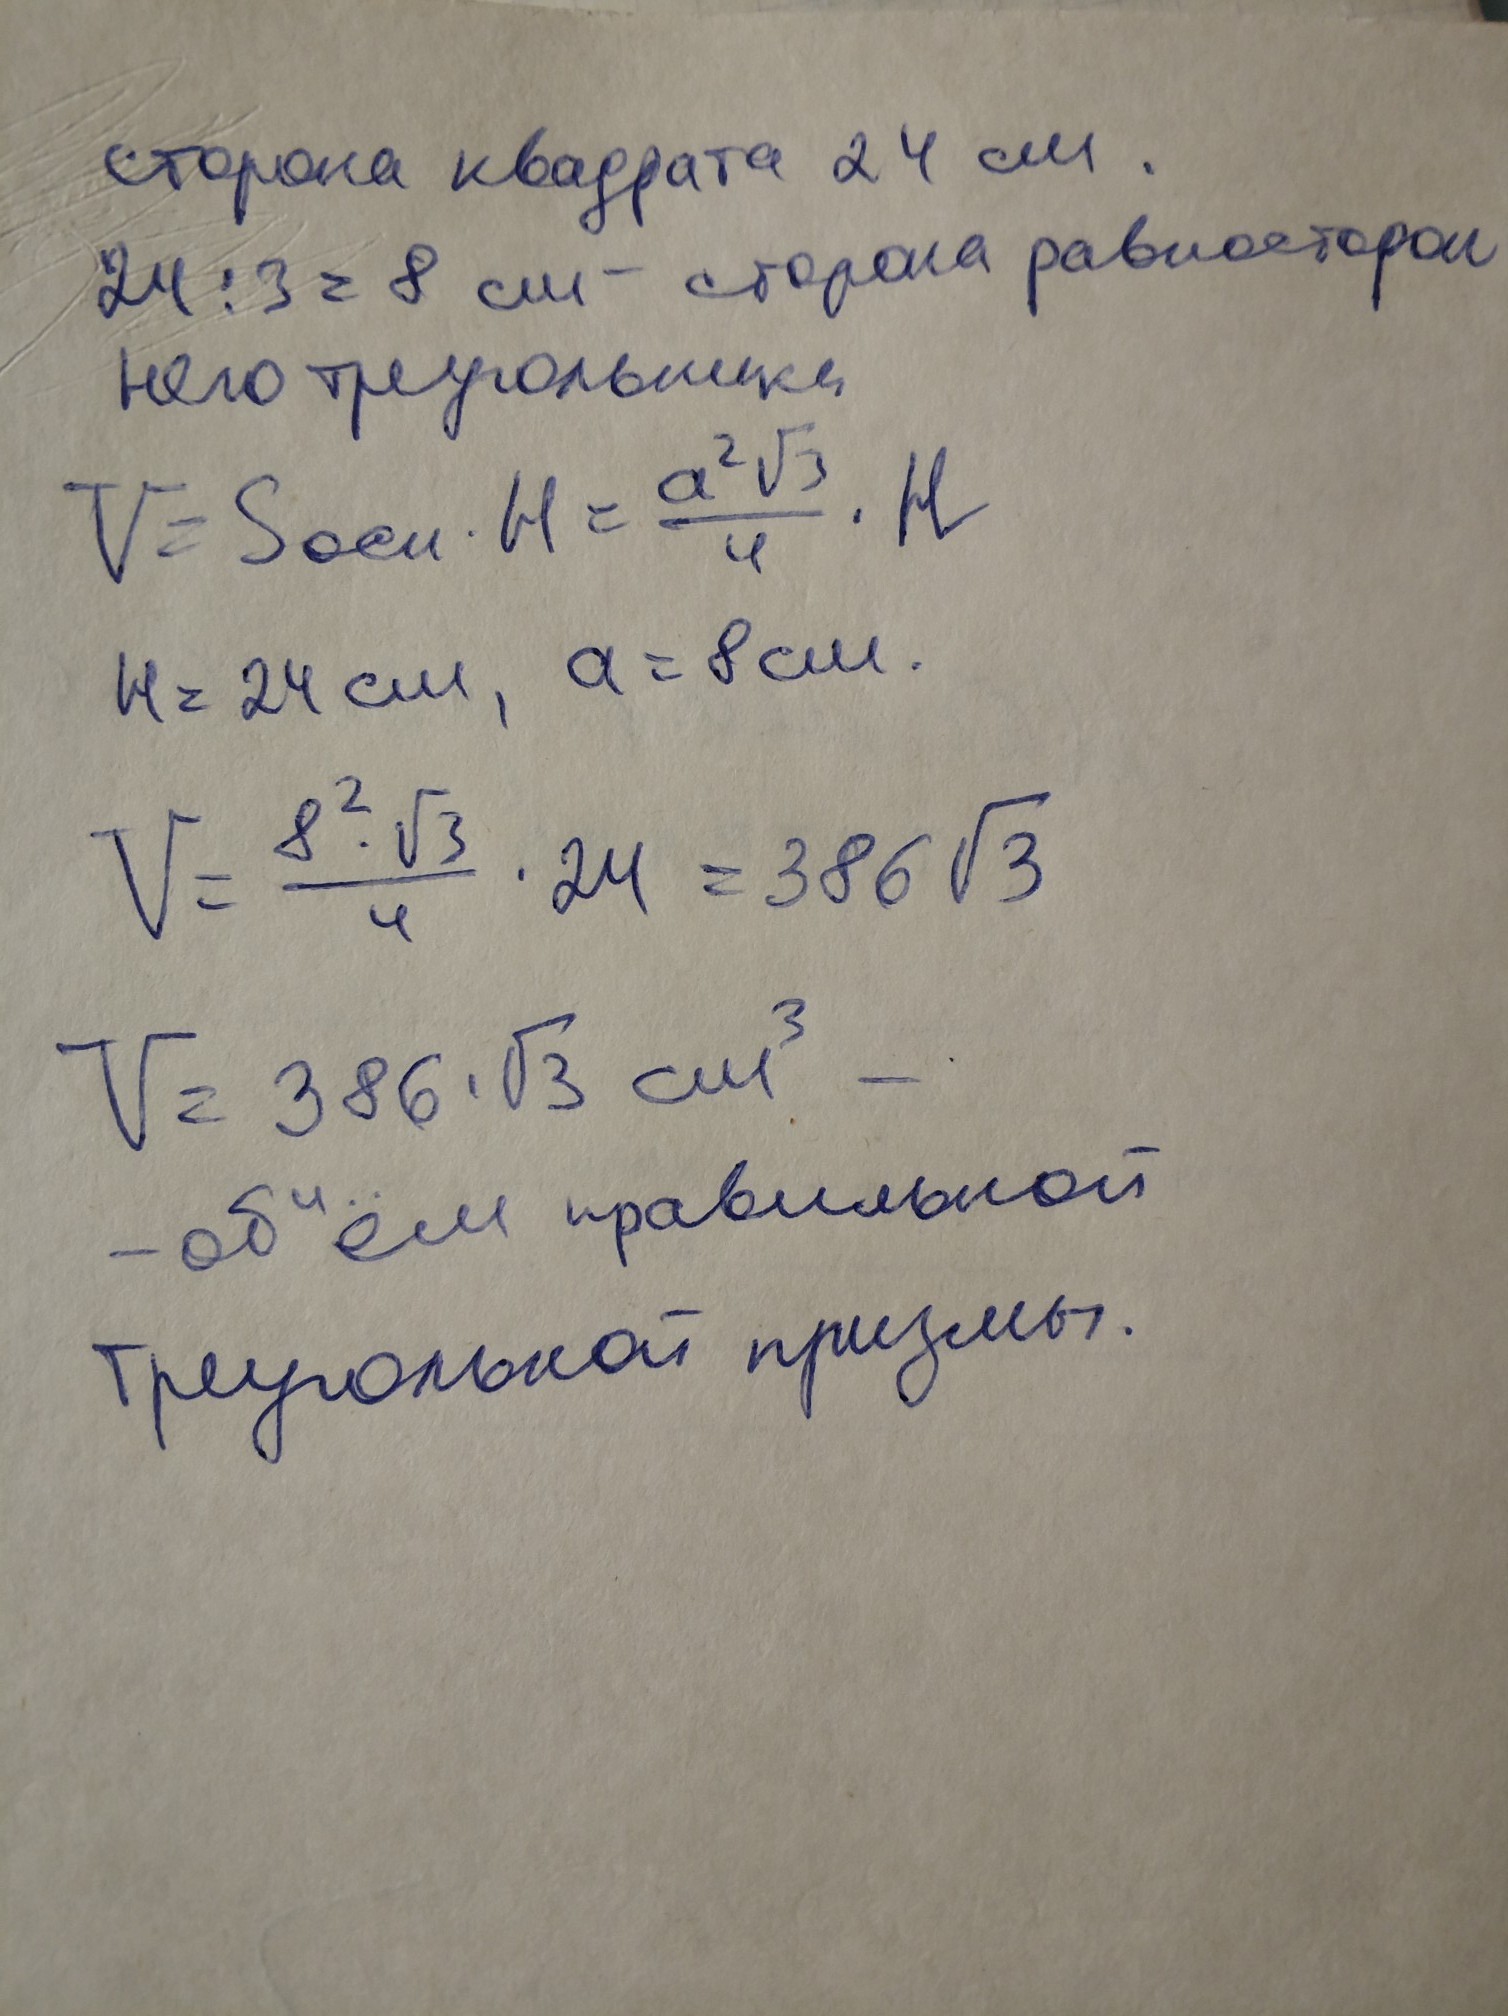 сторона квадрата 24 см.
24 : 3 = 8 см - сторона равносторон
него треугольника
V = Sосн · H = a²√3/4 · H
H = 24 см, a = 8 см.
V = 8² · √3/4 · 24 = 386√3
V = 386 · √3 см³ –
– объём правильной
треугольной призмы.